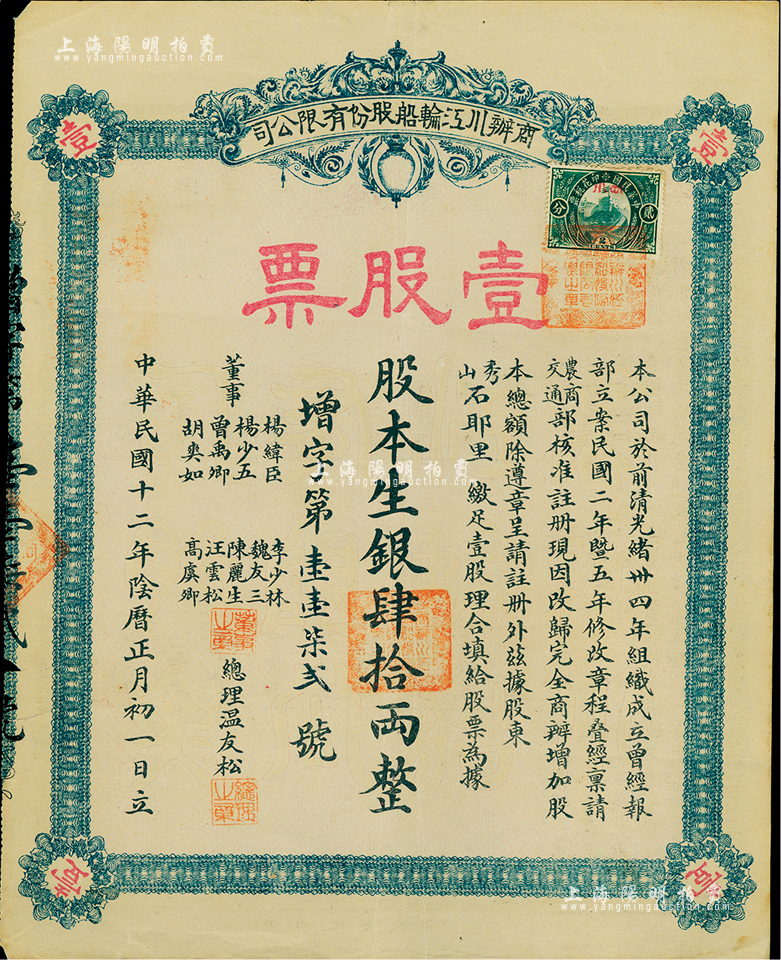 上海陽明拍賣
www.yangmingauction.com
商辦川江輪船股份有限公司
壹
壹
貳
分
壹股票
本公司於前清光緒卅四年組織成立曾經報
部立案民國二年暨五年修改章程叠經稟請
農商交通部核准註册現因改歸完全商辦增加股
本總額除遵章呈請註册外茲據股東
秀山石耶里 繳足壹股理合填給股票為據
股本生銀肆拾両整
增字第壹壹柒弍號
董事
楊緯臣
楊少五
曾禹卿
胡奐如
李少林
魏友三
陳麗生
汪雲松
高虞卿
董事之章
總理溫友松
總理之章
中華民國十二年陰曆正月初一日立
上海陽明拍賣
www.yangmingauction.com
壹
壹
上海陽明拍賣
www.yangmingauction.com